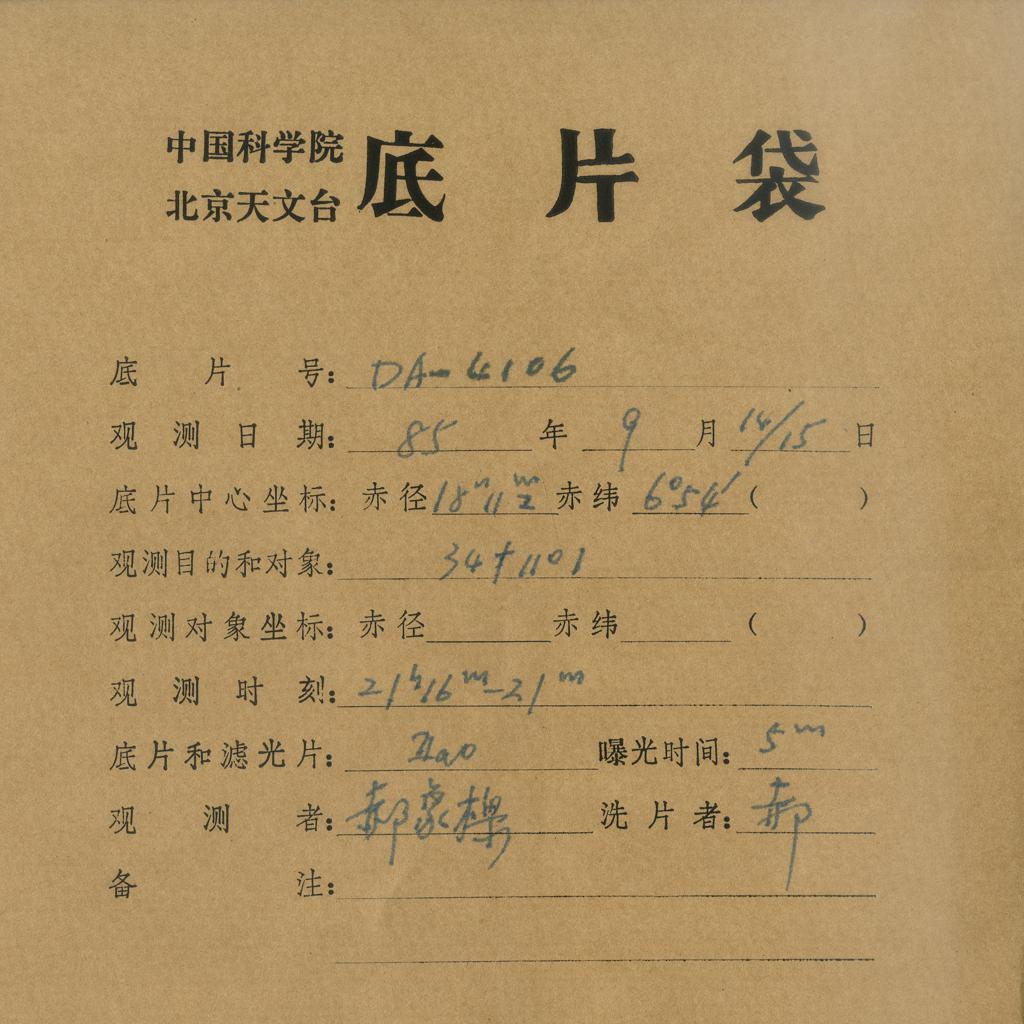 中国科学院
北京天文台
底片袋
底片号：DA-4106
观测日期：85年9月14/15日
底片中心坐标：赤径18ʰ11ᵐ2赤纬6°54′（ ）
观测目的和对象：34+1101
观测对象坐标：赤径 赤纬 （ ）
观测时刻：21ʰ16ᵐ-21ᵐ
底片和滤光片：IIaO 曝光时间：5ᵐ
观测者：郝象樑 洗片者：郝
备注：